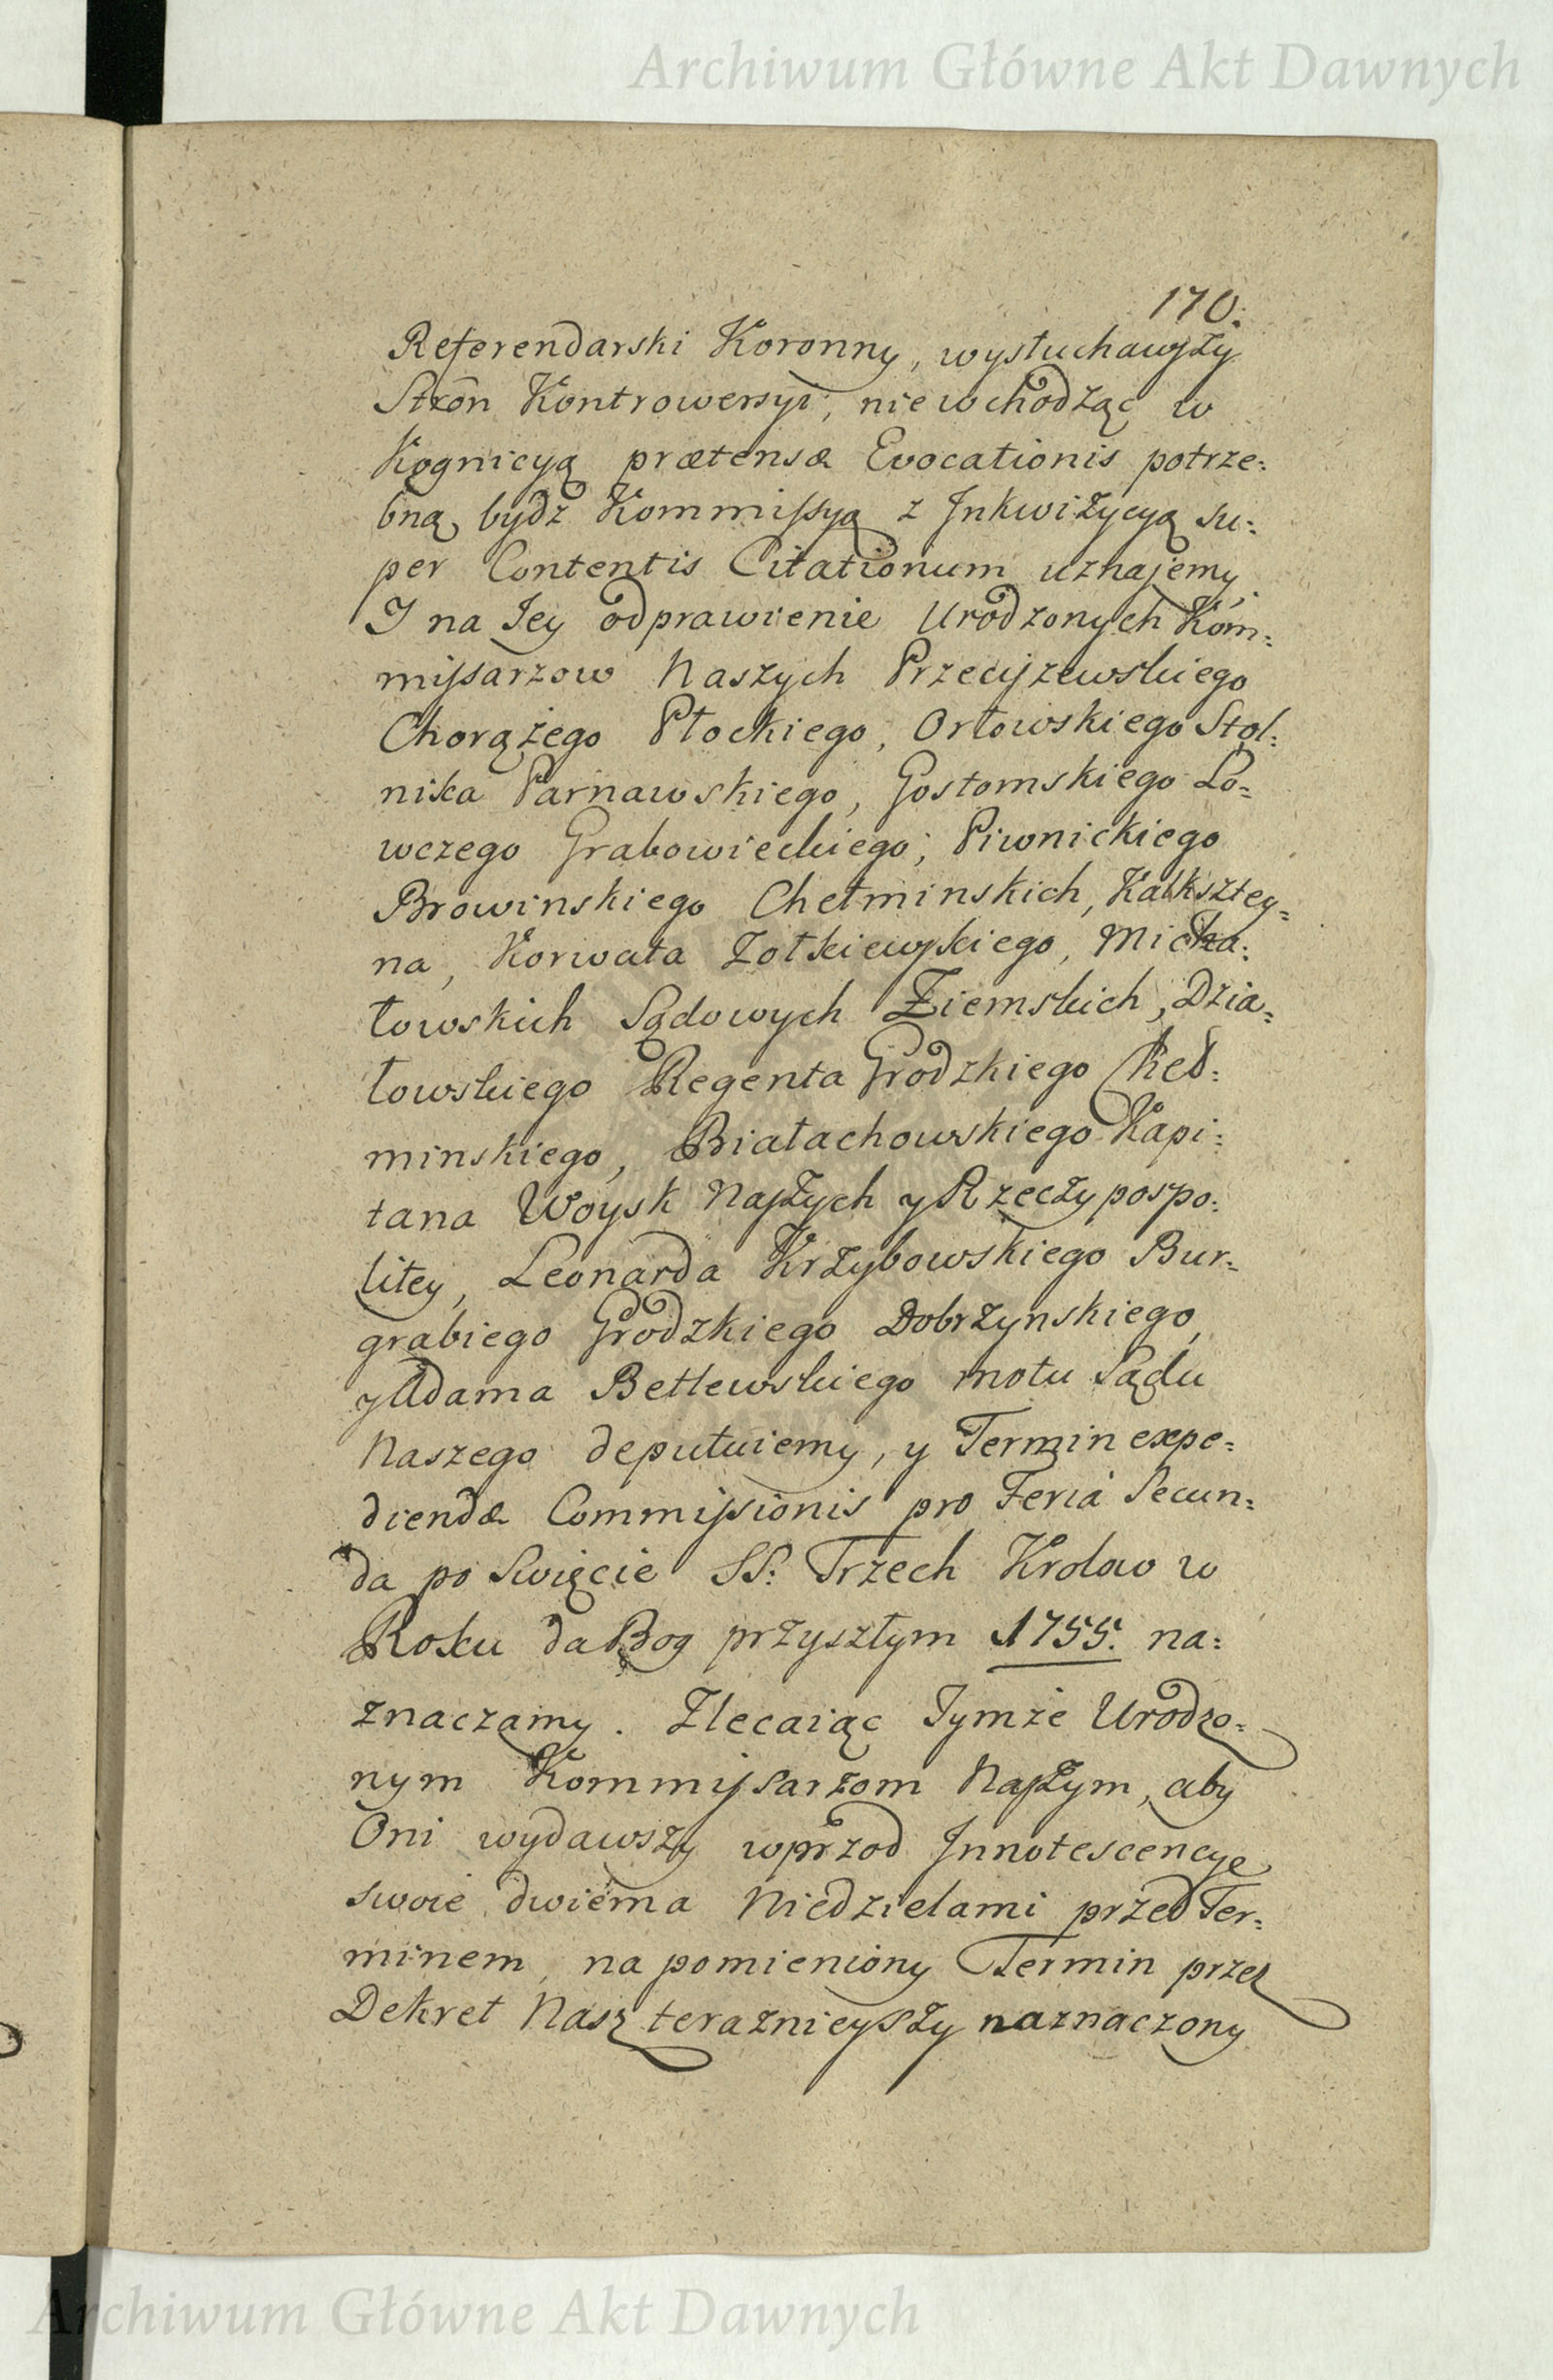 Archiwum Główne Akt Dawnych
170.
Referendarski Koronny, wysłuchawszy
Stron Kontrowersyi, nie wchodząc w
Kognicyą prætensæ Evocationis potrze:
bną bydź Kommissyą z Inkwizycyą su:
per Contentis Citationum uznajemy,
I na Jey odprawienie Urodzonych Kom:
missarzow Naszych Przeciszewskiego
Chorążego Płockiego, Orłowskiego Stol:
nika Parnawskiego, Gostomskiego Ło:
wczego Grabowieckiego, Piwnickiego
Browinskiego Chełminskich, Kalksztey:
na, Korwata Żołkiewskiego, Micha:
łowskich Sądowych Ziemskich, Dzia:
łowskiego Regenta Grodzkiego Cheł:
minskiego, Białachowskiego Kapi:
tana Woysk Naszych y Rzeczypospo:
litey, Leonarda Krzybowskiego Bur:
grabiego Grodzkiego Dobrzynskiego,
y Adama Betlewskiego motu Sądu
Naszego deputuiemy, y Termin expe:
diendæ Commissionis pro Feria Secun:
da po Swięcie SS: Trzech Krolow w
Roku da Bog przyszłym 1755. na:
znaczamy. Zlecaiąc Tymże Urodzo:
nym Kommissarzom Naszym, aby
Oni wydawszy wprzod Innotescencye
swoie dwiema Niedzielami przed Ter:
minem, na pomieniony Termin przez
Dekret Nasz teraznieyszy naznaczony
Archiwum Główne Akt Dawnych